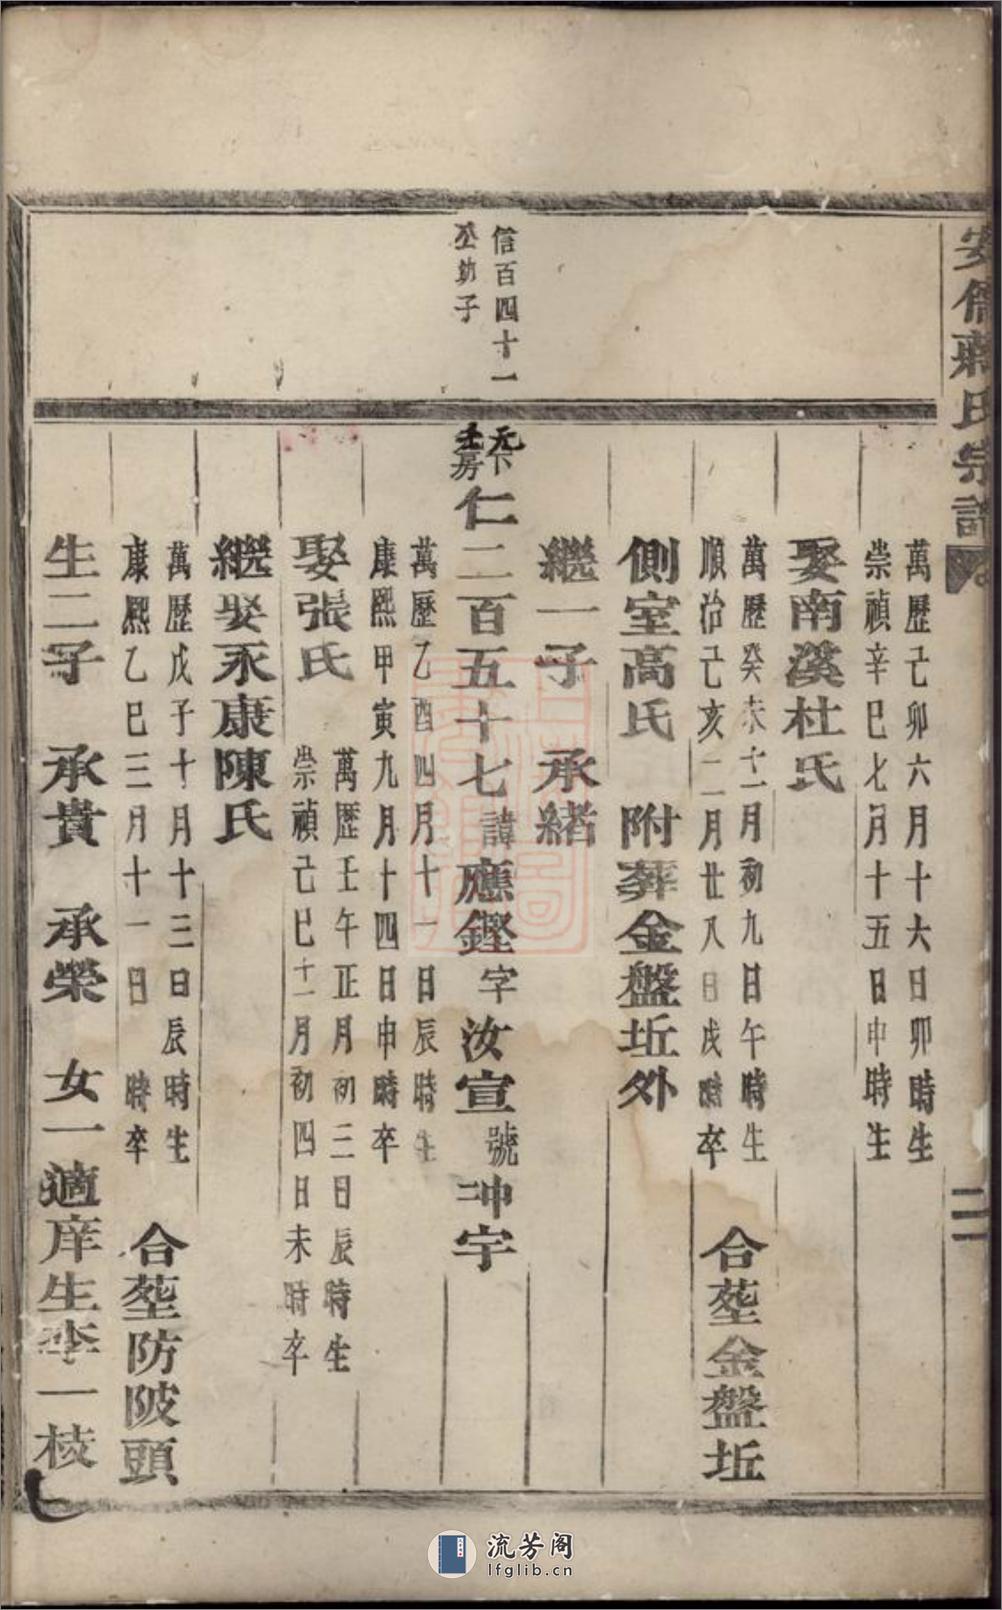 氏宗譜
二
萬歷己卯六月十六日卯時生
崇禎辛巳七月十五日申時生
娶南溪杜氏
萬歷癸未十二月初九日午時生
順治己亥二月廿八日戌時卒
合塟金盤坵
側室高氏 附葬金盤坵外
繼一子 承緒
信百四十一
公幼子
房
仁二百五十七諱應鏗字汝宣號冲宇
萬歷乙酉四月十一日辰時生
康熙甲寅九月十四日申時卒
娶張氏
萬歷壬午正月初三日辰時生
崇禎己巳十一月初四日未時卒
繼娶永康陳氏
萬歷戊子十月十三日辰時生
康熙乙巳三月十一日 時卒
合塟防陂頭
生二子 承貴 承榮 女一適庠生李一棱
流芳阁
lfglib.cn